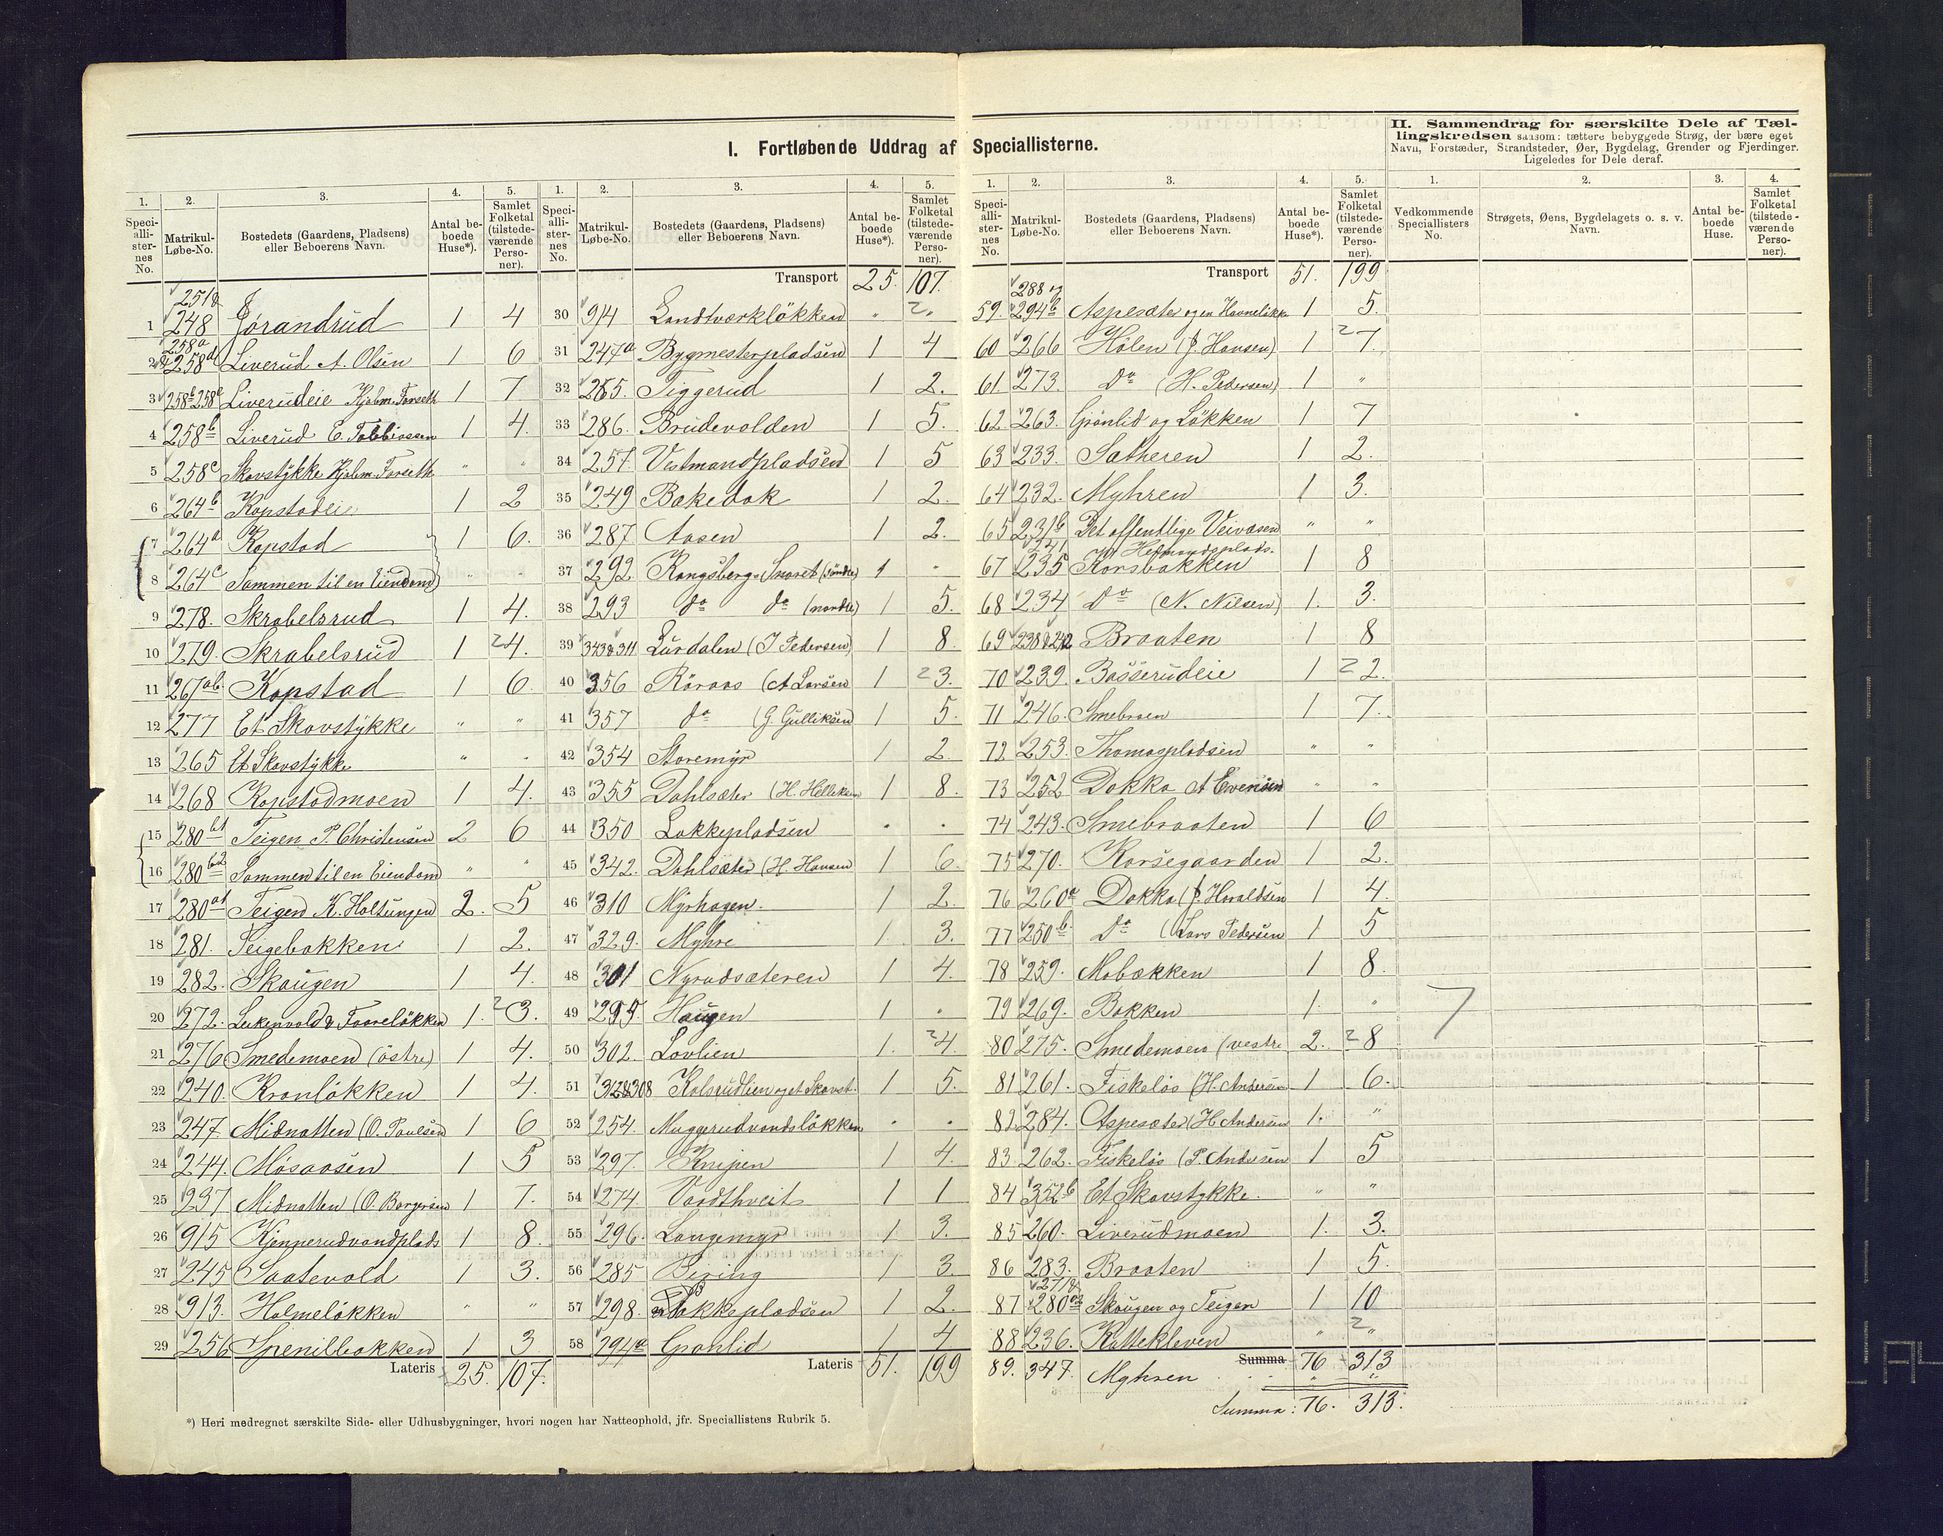 I. Fortløbende Uddrag af Speciallisterne.
1. 2. 3. 4. 5.
Speciallisternes No. Matrikul-Løbe-No. Bostedets (Gaardens, Pladsens) eller Beboerens Navn. Antal beboede Huse*). Samlet Folketal (tilstedeværende Personer).
251
1 248 Jørandrud 1 4
258a
2 258d Liverud A. Olsen 1 6
3 258b 258e Liverudeie Hjalm. Forseth 1 7
4 258b Liverud E. Tobbiassen 1 4.
5 258c Skovstykke Hjalm. Forseth " "
6 264b Kopstadeie 1 2
7 264a Kopstad 1 6.
8 264c Sammen til en Eiendom
9 278. Skrabelsrud 1 4.
10 279. Skrabelsrud 1 2 4.
11 267ab Kopstad 1 6.
12 277 Et Skovstykke " "
13 265 Et Skovstykke " "
14 268 Kopstadmoen 1 4.
15 280b1 Teigen P. Christensen 2 6
16 280b2 Sammen til en Eiendom " "
17 280a1 Teigen K. Holtungen 2. 5
18 281. Teigebakken 1 2.
19 282. Skougen 1 4.
20 272. & Taareløkken 1. 2 3.
21 276 Smedemoen (östre) 1 4.
22 240. Kronløkken 1 4.
23 247. Midnatten (O. Paulsen 1 6
24 244. Mosaasen 1 5
25 237 Midnatten (O. Borgersen 1 7.
26 915 Kjennerudvandplads 1 8.
27 245 Saatevold 1 3.
28 913. Holmeløkken " "
29 256 Spenilbakken 1 3
Lateris 25. 107.
1. 2. 3. 4. 5.
Speciallisternes No. Matrikul-Løbe-No. Bostedets (Gaardens, Pladsens) eller Beboerens Navn. Antal beboede Huse*). Samlet Folketal (tilstedeværende Personer).
Transport 25. 107.
30 914 Landtværkløkken " 2 "
31 247a Bygmesterpladsen 1 4
32 265. Tiggerud 1 2.
33 286. Brudevolden 1 5.
34 257. Vestmandpladsen 1 5
35 249 Bakedok 1 2.
36 287 Aasen 1 2.
37 292 Kongsbergs Smoret (søndre) 1 "
38 293 do do (nordre) 1 5.
39 343 & 311 Lurdalen (J. Pedersen) 1 8.
40 356 Röraas (A Larsen 1 2 3.
41 357 do (G. Gulliksen 1 5.
42 354 Storemyr 1 2
43 355 Dahlsæter (H. Helliksen 1 8.
44 350 Løkkepladsen " "
45 342. Dahlsæter (H. Hansen 1 6.
46 310 Myrhagen. 1 2.
47 329. Myhre 1 3.
48 301 Nyrudsæteren 1 4.
49 295 Haugen 1 "
50 302. Lovlien 1. 2 4.
51 312 & 308 Kolsrudlien og et Skovst. 1 5.
52 254. Muggerudvandsløkken " "
53 297. Knipen 1 4.
54 274 Vardthveit 1 1
55 296. Langemyr 1 3.
56 285 Bering 1 3
57 298. Løkkepladsen 1 2.
58 294a Grønlid 1 4
Lateris 51. 199
1. 2. 3. 4. 5.
Speciallisternes No. Matrikul-Løbe-No. Bostedets (Gaardens, Pladsens) eller Beboerens Navn. Antal beboede Huse*). Samlet Folketal (tilstedeværende Personer).
Transport 51. 199
288 og
59. 294b Aspesæter og en Havneløkke 1 5.
60 266 Hølen (J. Hansen) 1 2 7.
61. 273. do (H. Pedersen) 1 "
62. 263. Grønlid og Løkken 1 7
63 233. Sætheren 1 2.
64 232. Myhren 1 3.
65 231b Det offentlige Veivæsen " "
67 235 Korsbakken 1 8
68 234 do (N. Nilsen) 1. 3.
69 238 & 242 Braaten 1 8
70 239. Basserudeie 1 2 2.
71 246. Smebraen 1 7.
72 253. Thomaspladsen " "
73 252 Dokka A Evensen " "
74 243. Smebraaten 1 6
75 270. Korsegaarden 1 2.
76 260a Dokka (J. Haraldsen 1 4
77 250b do (Lars Pedersen 1 5
78 259. Mobækken 1 8.
79 269. Bakken 1. "
80 275. Smedemoen (vestre 2. 2 8 7
81 261. Fiskeløs (H. Andersen 1 6.
82 284. Aspesæter (H. Andersen 1. "
83 262. Fiskeløs (P. Andersen 1 5
84 352b Et Skovstykke. " "
85 260. Liverudmoen 1. 3.
86 283. Braaten 1 5.
271
87 280a2 Skougen og Teigen 1 10
88 236. Kattekleven " 2 "
Summa 76 313
89. 347. Myhren " "
Summa: 76. 313.
II. Sammendrag for særskilte Dele af Tællingskredsen saasom: tættere bebyggede Strøg, der bære eget Navn, Forstæder, Strandsteder, Øer, Bygdelag, Grender og Fjerdinger. Ligeledes for Dele deraf.
1. 2. 3. 4.
Vedkommende Speciallisters No. Strøgets, Øens, Bygdelagets o. s. v. Navn. Antal beboede Huse. Samlet Folketal (tilstedeværende Personer).
*) Heri medregnet særskilte Side- eller Udhusbygninger, hvori nogen har Natteophold, jfr. Speciallistens Rubrik 5.